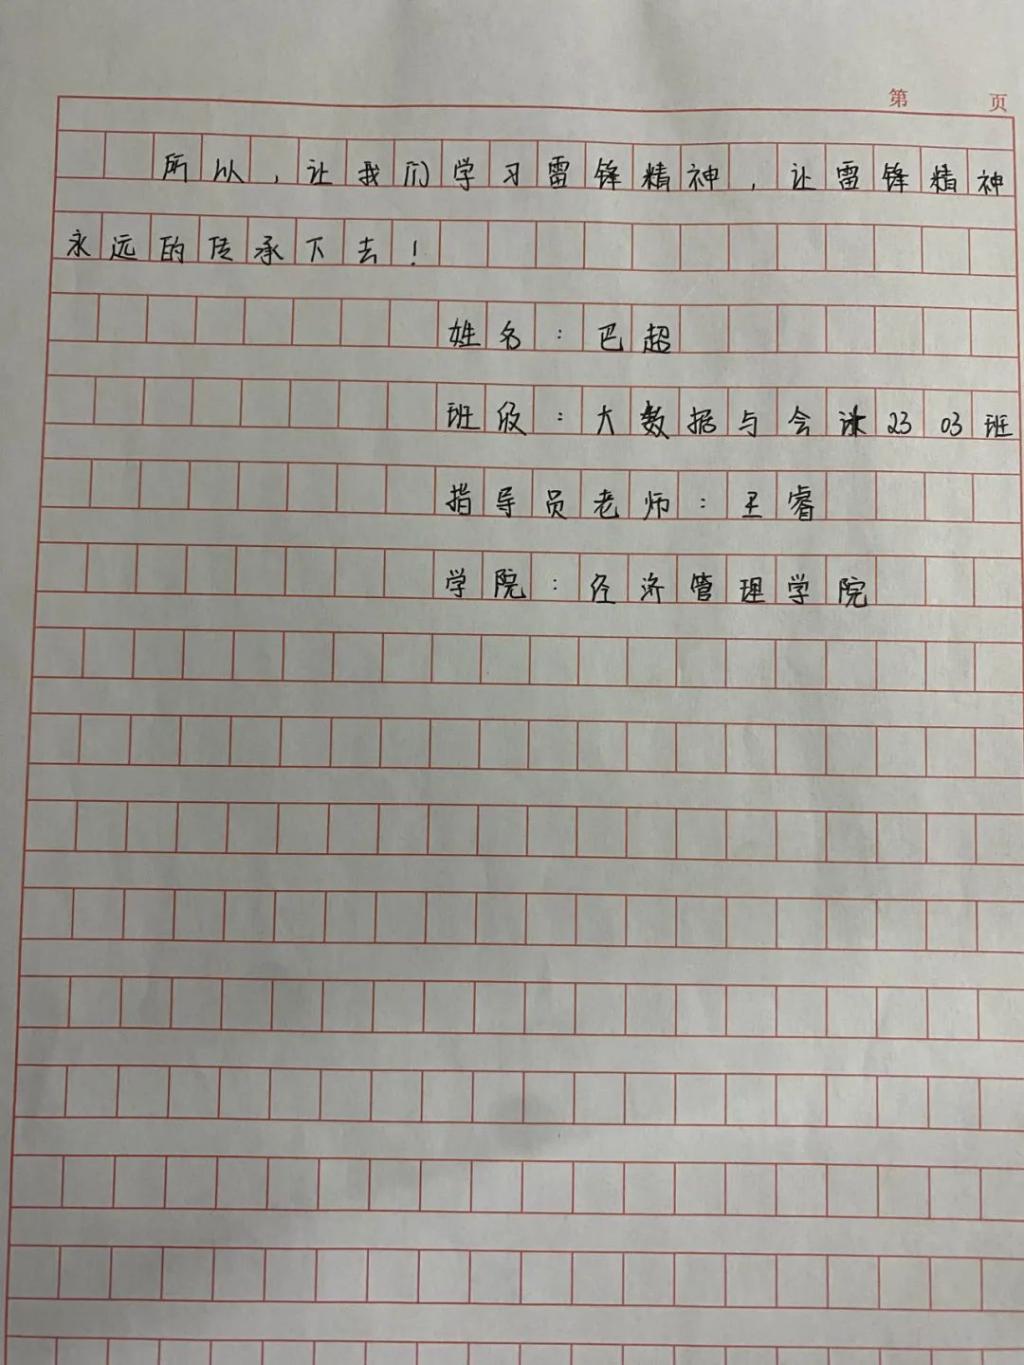 第 页
所以，让我们学习雷锋精神，让雷锋精神
永远的传承下去！
姓名：巴超
班级：大数据与会计2303班
指导员老师：王睿
学院：经济管理学院